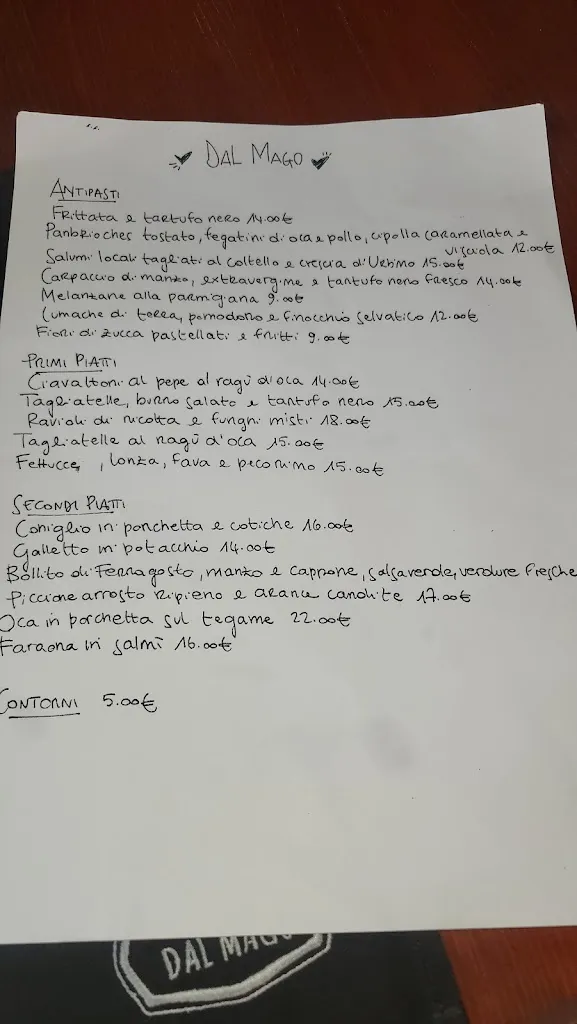 DAL MAGO
ANTIPASTI
Frittata e tartufo nero 14.00€
Panbrioches tostato, fegatini di oca e pollo, cipolla caramellata e
visciola 12.00€
Salumi locali tagliati al coltello e crescia d'Urbino 15.00€
Carpaccio di manzo, extravergine e tartufo nero fresco 14.00€
Melanzane alla parmigiana 9.00€
Lumache di terra, pomodoro e finocchio selvatico 12.00€
Fiori di zucca pastellati e fritti 9.00€
PRIMI PIATTI
Ciavaltoni al pepe al ragù d'oca 14.00€
Tagliatelle, burro salato e tartufo nero 15.00€
Ravioli di ricotta e funghi misti 18.00€
Tagliatelle al ragù d'oca 15.00€
Fettucce, lonza, fava e pecorino 15.00€
SECONDI PIATTI
Coniglio in porchetta e cotiche 16.00€
Galletto in potacchio 14.00€
Bollito di Ferragosto, manzo e cappone, salsaverde, verdure fresche
Piccione arrosto ripieno e arance candite 17.00€
Oca in porchetta sul tegame 22.00€
Faraona in salmì 16.00€
CONTORNI 5.00€
DAL MAGO